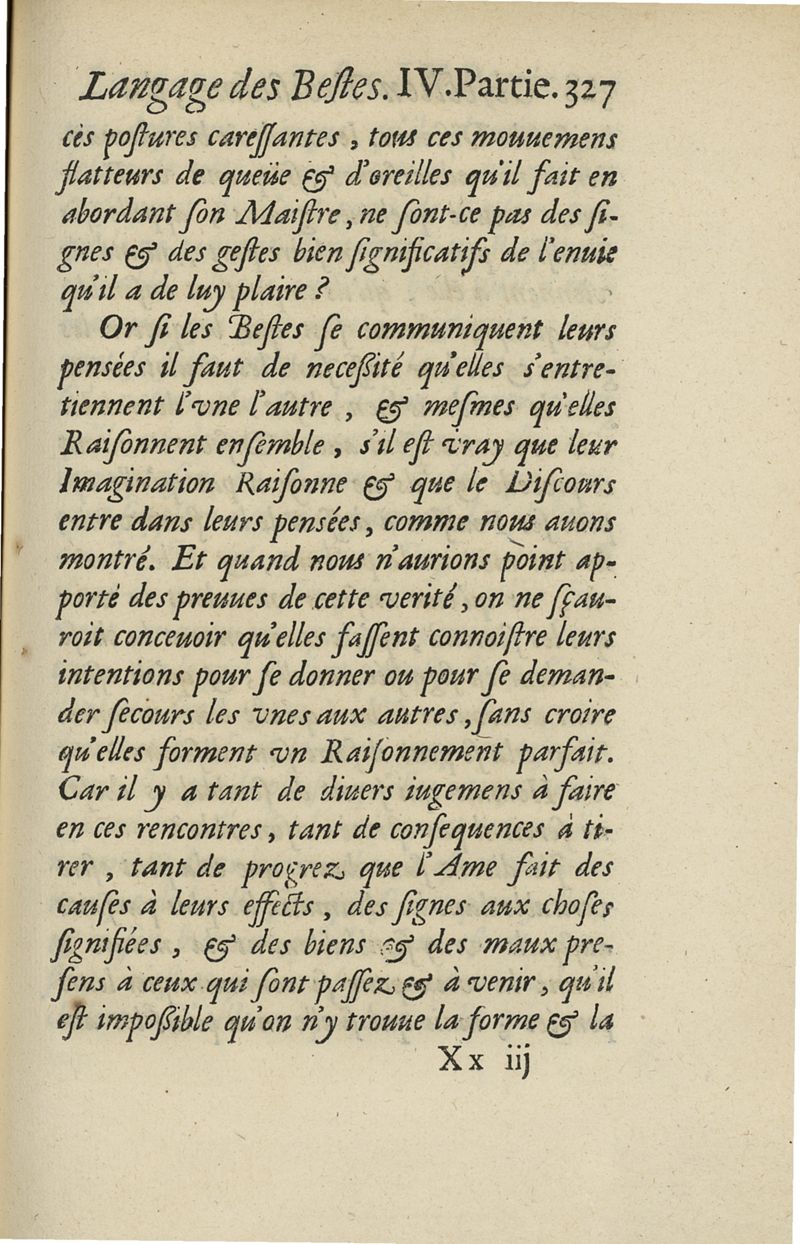 Langage des Beſtes. IV. Partie. 327
ces poſtures careſſantes , tous ces mouuemens
flatteurs de queüe & d'oreilles qu'il fait en
abordant ſon Maiſtre, ne ſont-ce pas des ſi-
gnes & des geſtes bien ſignificatifs de l'enuie
qu'il a de luy plaire ?
Or ſi les Beſtes ſe communiquent leurs
pensées il faut de neceßité qu'elles s'entre-
tiennent l'vne l'autre , & meſmes qu'elles
Raiſonnent enſemble , s'il eſt vray que leur
Imagination Raiſonne & que le Diſcours
entre dans leurs pensées, comme nous auons
montré. Et quand nous n'aurions point ap-
porté des preuues de cette verité, on ne ſçau-
roit conceuoir qu'elles faſſent connoiſtre leurs
intentions pour ſe donner ou pour ſe deman-
der ſecours les vnes aux autres, ſans croire
qu'elles forment vn Raiſonnement parfait.
Car il y a tant de diuers iugemens à faire
en ces rencontres, tant de conſequences à ti-
rer , tant de progrez que l'Ame fait des
cauſes à leurs effects , des ſignes aux choſes
ſignifiées , & des biens & des maux pre-
ſens à ceux qui ſont paſſez & à venir, qu'il
eſt impoßible qu'on n'y trouue la forme & la
Xx iij